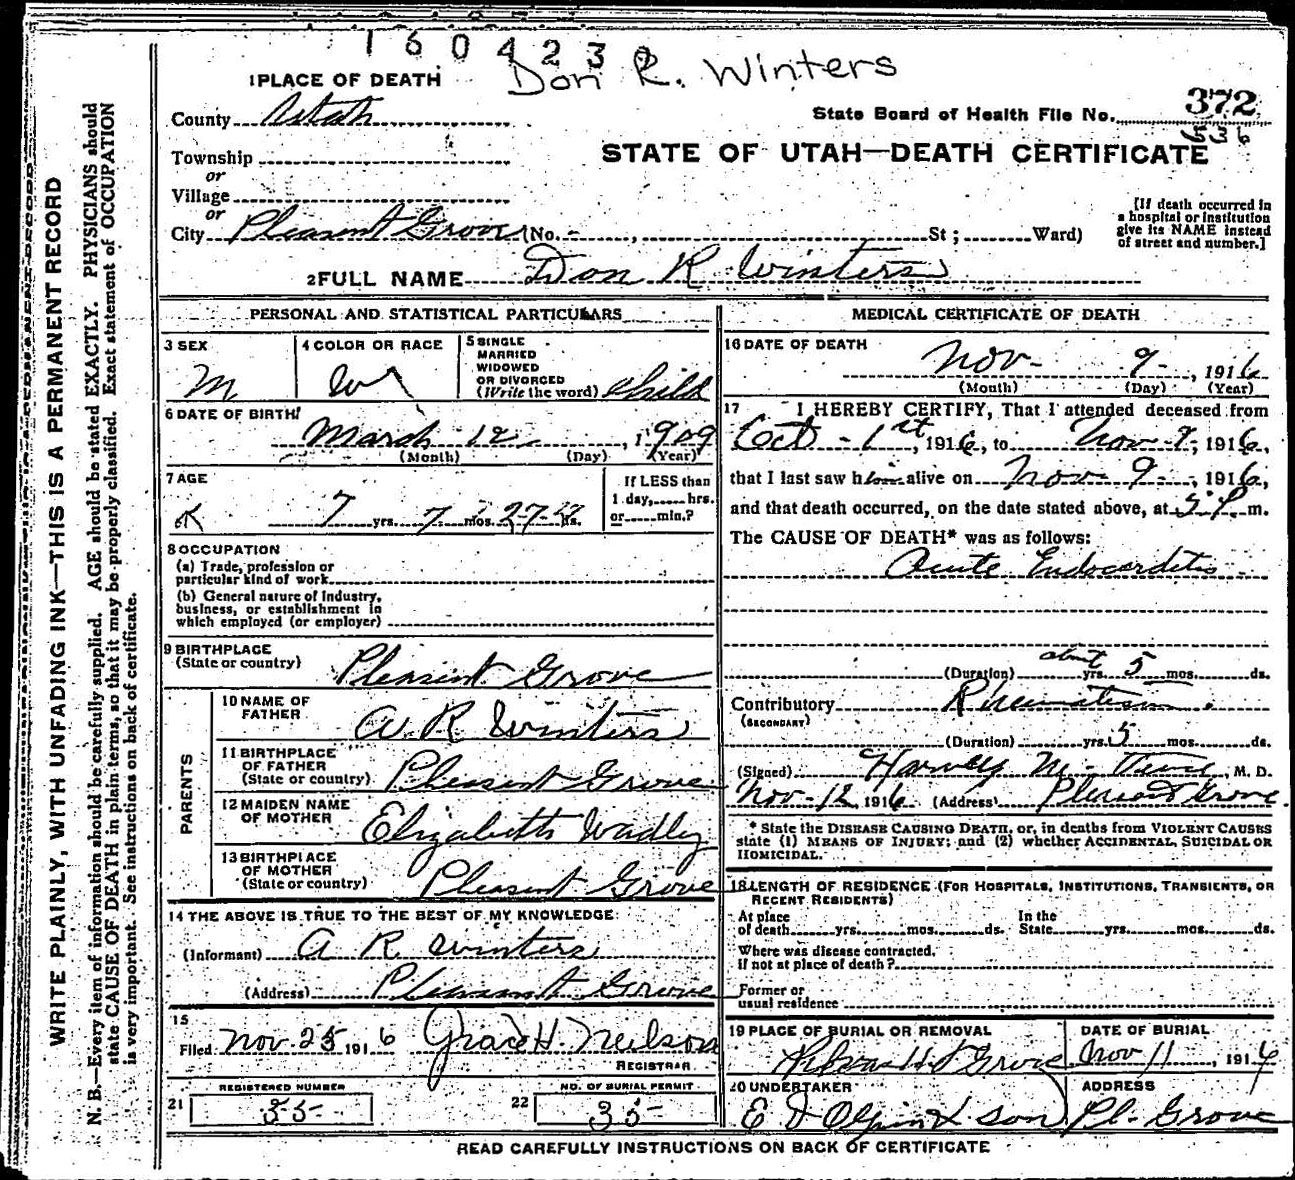 1604232
Don R. Winters
1 PLACE OF DEATH
County Utah
State Board of Health File No. 372
636
Township
or
STATE OF UTAH—DEATH CERTIFICATE
Village
or
City Pleasant Grove (No. - , St ; Ward)
[If death occurred in
a hospital or institution
give its NAME instead
of street and number.]
2 FULL NAME Don R Winters
PERSONAL AND STATISTICAL PARTICULARS
3 SEX
M
4 COLOR OR RACE
W
5 SINGLE
MARRIED
WIDOWED
OR DIVORCED
(Write the word) Child
6 DATE OF BIRTH
March 12 , 1909
(Month) (Day) (Year)
7 AGE
7 yrs. 7 mos. 27 ds.
If LESS than
1 day, hrs.
or min.?
8 OCCUPATION
(a) Trade, profession or
particular kind of work
(b) General nature of Industry,
business, or establishment in
which employed (or employer)
9 BIRTHPLACE
(State or country) Pleasant Grove
PARENTS
10 NAME OF
FATHER A R Winters
11 BIRTHPLACE
OF FATHER
(State or country) Pleasant Grove
12 MAIDEN NAME
OF MOTHER Elizabeth Wadley
13 BIRTHPLACE
OF MOTHER
(State or country) Pleasant Grove
14 THE ABOVE IS TRUE TO THE BEST OF MY KNOWLEDGE
(Informant) A R Winters
(Address) Pleasant Grove
15
Filed Nov 25 1916 Grace H. Neilson
REGISTRAR
REGISTERED NUMBER
21 35
NO. OF BURIAL PERMIT
22 35
MEDICAL CERTIFICATE OF DEATH
16 DATE OF DEATH
Nov- 9- , 1916
(Month) (Day) (Year)
17 I HEREBY CERTIFY, That I attended deceased from
Oct - 1st , 1916, to Nov-9-, 1916,
that I last saw him alive on Nov-9-, 1916,
and that death occurred, on the date stated above, at 5 P. m.
The CAUSE OF DEATH* was as follows:
Acute Endocarditis
(Duration) yrs. about 5 mos. ds.
Contributory Rheumatism.
(SECONDARY)
(Duration) yrs. 5 mos. ds.
(Signed) Harvey M. , M. D.
Nov-12, 1916 (Address) Pleasant Grove.
* State the DISEASE CAUSING DEATH, or, in deaths from VIOLENT CAUSES
state (1) MEANS OF INJURY; and (2) whether ACCIDENTAL, SUICIDAL OR
HOMICIDAL.
18 LENGTH OF RESIDENCE (FOR HOSPITALS, INSTITUTIONS, TRANSIENTS, OR
RECENT RESIDENTS)
At place
of death yrs. mos. ds.
In the
State yrs. mos. ds.
Where was disease contracted,
if not at place of death?
Former or
usual residence
19 PLACE OF BURIAL OR REMOVAL
Grove
DATE OF BURIAL
Nov 11 , 1916
20 UNDERTAKER
E & Son
ADDRESS
Pl. Grove
READ CAREFULLY INSTRUCTIONS ON BACK OF CERTIFICATE
WRITE PLAINLY, WITH UNFADING INK—THIS IS A PERMANENT RECORD
N. B.—Every item of information should be carefully supplied. AGE should be stated EXACTLY. PHYSICIANS should
state CAUSE OF DEATH in plain terms, so that it may be properly classified. Exact statement of OCCUPATION
is very important. See instructions on back of certificate.